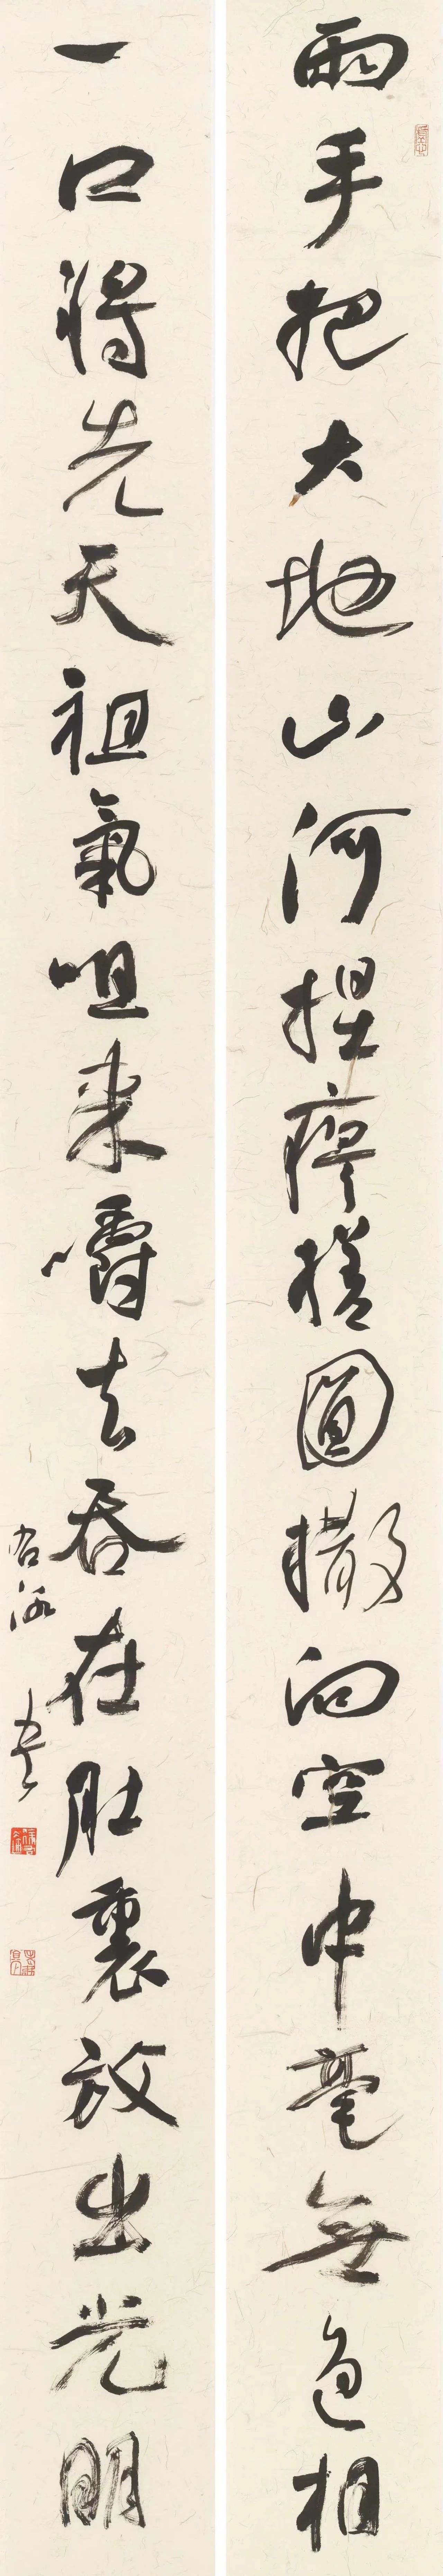 兩手把大地山河捏瘪搓圓撒向空中毫無色相
一口將先天祖氣咀来嚼去吞在肚裏放出光明